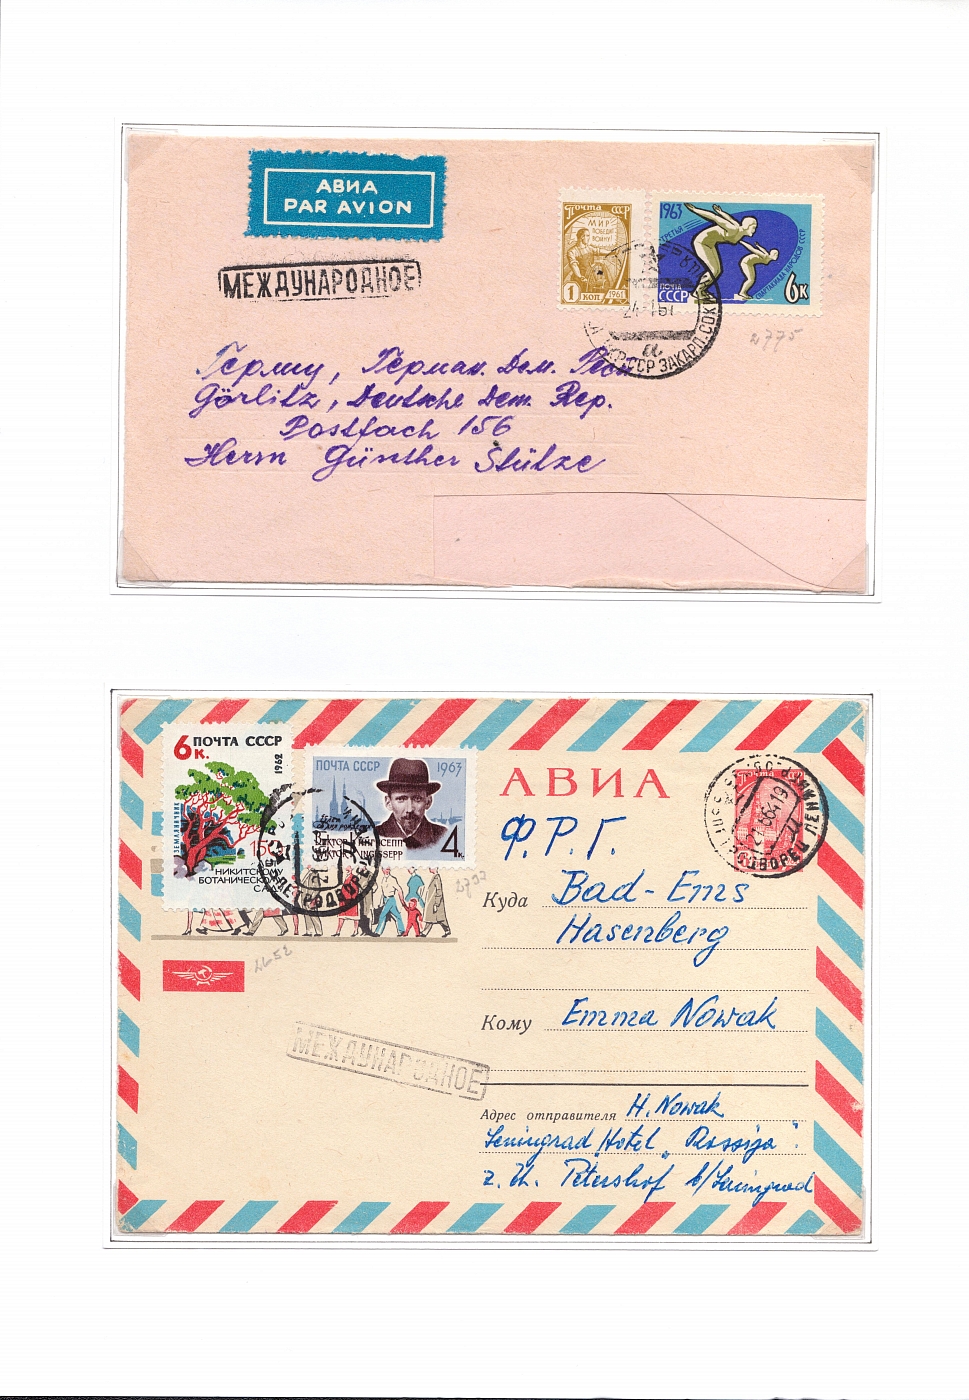 АВИА
PAR AVION
МЕЖДУНАРОДНОЕ
ПОЧТА СССР
МИР
ПОБЕДИТ
ВОЙНУ!
1 КОП. 1961
1963
ТРЕТЬЯ СПАРТАКИАДА НАРОДОВ СССР
ПОЧТА
СССР
6К
ССР ЗАКАРП.
2775
Герлиц, Герман. Дем. Респ
Görlitz, Deutsche Dem. Rep.
Postfach 156
Herrn Günther Stütze
6 К. ПОЧТА СССР
1962
ЗЕМЛЯНИЧНИК
150 ЛЕТ
НИКИТСКОМУ
БОТАНИЧЕСКОМУ
САДУ
ПОЧТА СССР 1963
Виктор Кингисепп
Viktor Kingissepp
4 К.
ПЕТРОДВОРЕЦ
2652
2792
АВИА
ПОЧТА
ПЕТРОДВОРЕЦ
Ф.Р.Г.
Куда Bad-Ems
Hasenberg
Кому Emma Nowak
МЕЖДУНАРОДНОЕ
Адрес отправителя H. Nowak
Leningrad Hotel „Rossija"
z. Zt. Petershof b/Leningrad